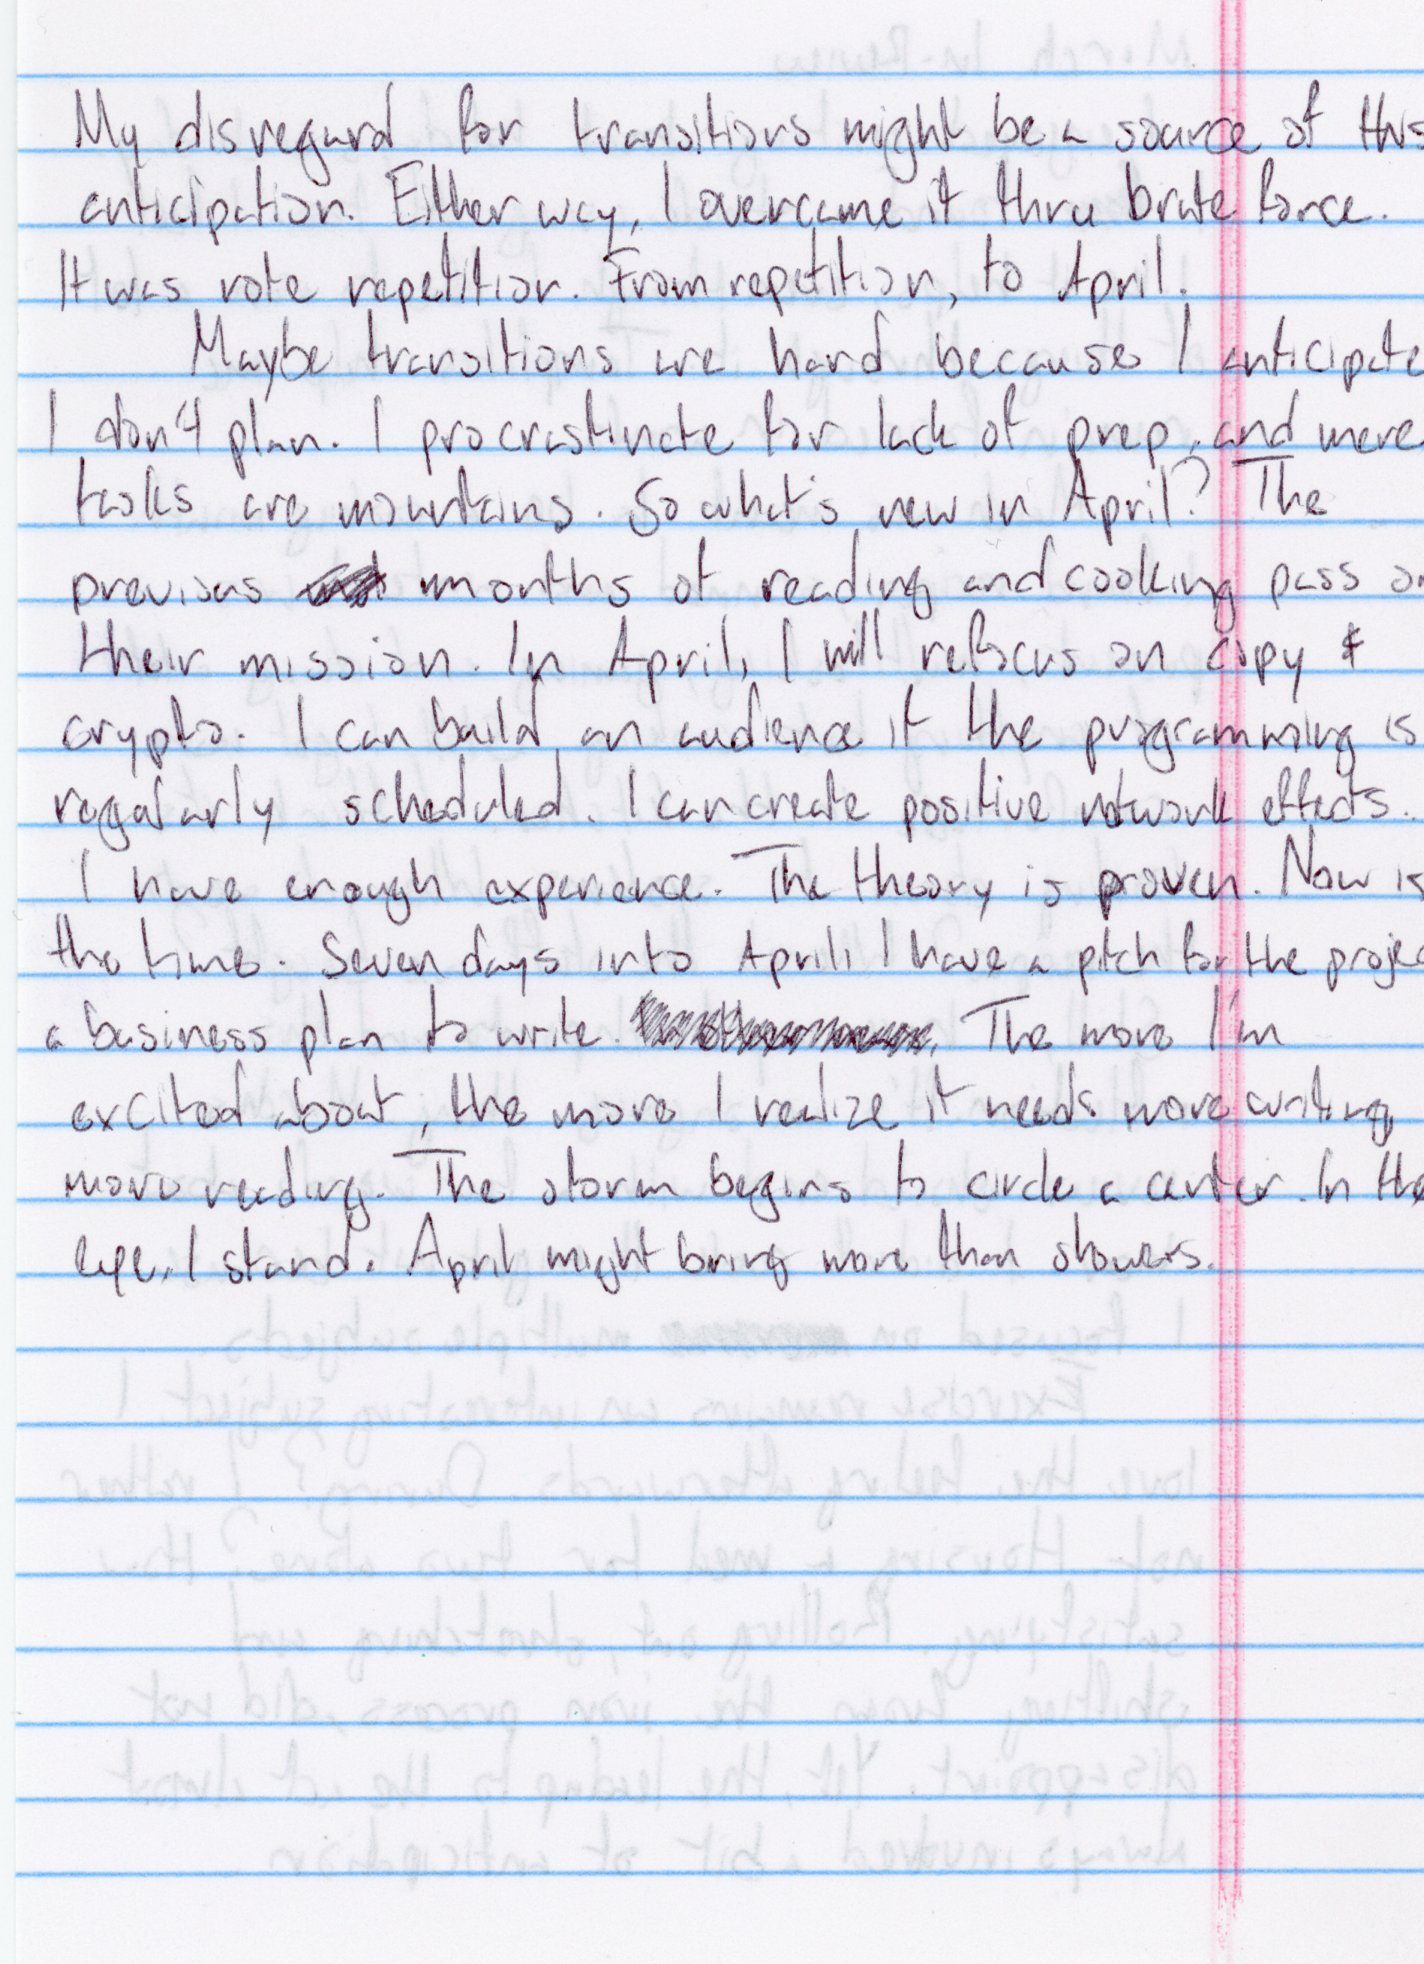 My disregard for transitions might be a source of this
anticipation. Either way, I overcame it thru brute force.
It was rote repetition. From repetition, to April.
Maybe transitions are hard because I anticipate
I don't plan. I procrastinate for lack of prep, and mere
tasks are mountains. So what's new in April? The
previous months of reading and cooking pass on
their mission. In April, I will refocus on copy &
crypto. I can build an audience if the programming is
regularly scheduled. I can create positive network effects.
I have enough experience. The theory is proven. Now is
the time. Seven days into April, I have a pitch for the projec
a business plan to write. The more I'm
excited about, the more I realize it needs more writing
more reading. The storm begins to circle a center. In the
eye, I stand. April might bring more than showers.